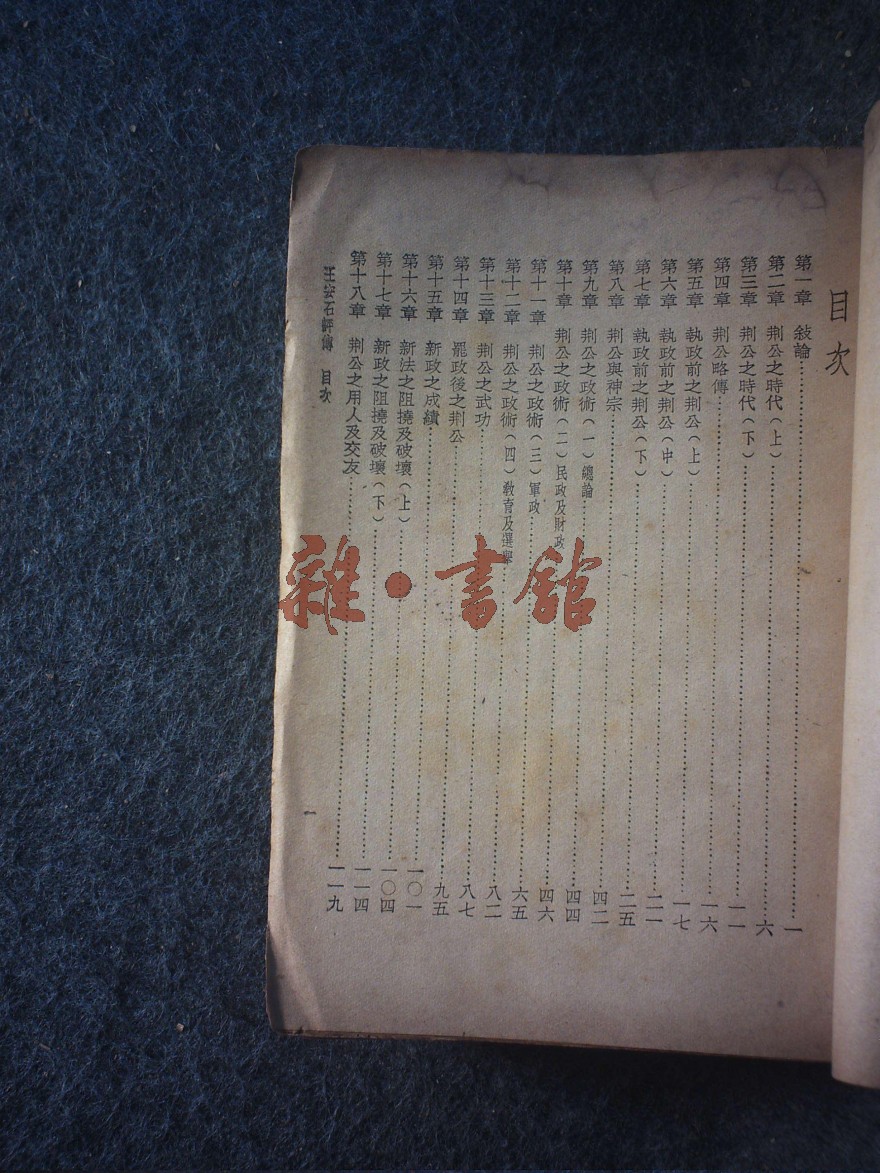 目次
第一章 敍論……一
第二章 荆公之時代（上）……六
第三章 荆公之時代（下）……一一
第四章 荆公略傳……一六
第五章 執政前之荆公（上）……一七
第六章 執政前之荆公（中）……二一
第七章 執政前之荆公（下）……二五
第八章 荆公與神宗……四二
第九章 荆公之政術（一）總論……四四
第十章 荆公之政術（二）民政及財政……四六
第十一章 荆公之政術（三）軍政……六五
第十二章 荆公之政術（四）教育及選舉……八二
第十三章 荆公之武功……八七
第十四章 罷政後之荆公……九五
第十五章 新政之成績……一〇一
第十六章 新法之阻撓及破壞（上）……一〇四
第十七章 新政之阻撓及破壞（下）……一一四
第十八章 荆公之用人及交友……一一九
王安石評傳 目次
一
雜·書館